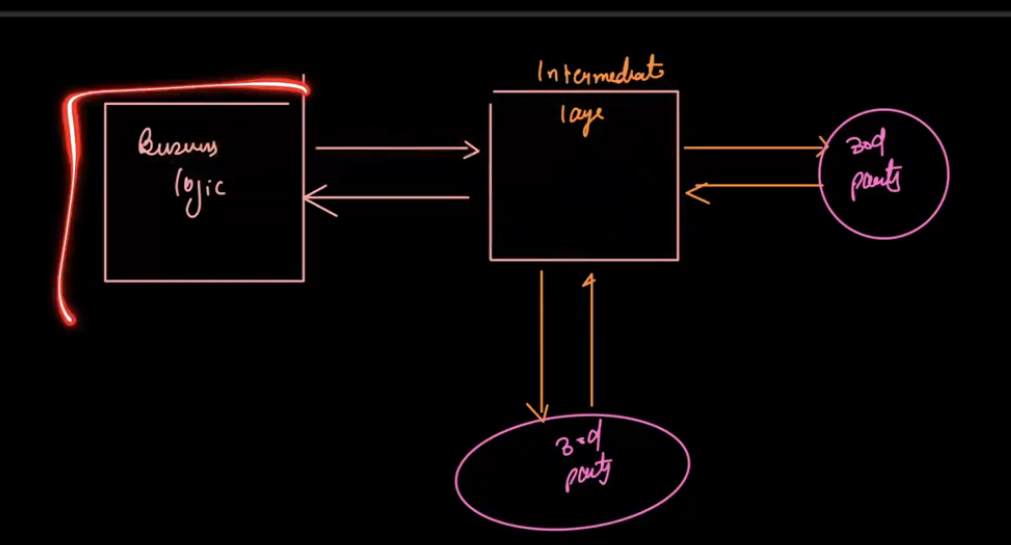 Business
logic
Intermediat
laye
3rd
party
3rd
party